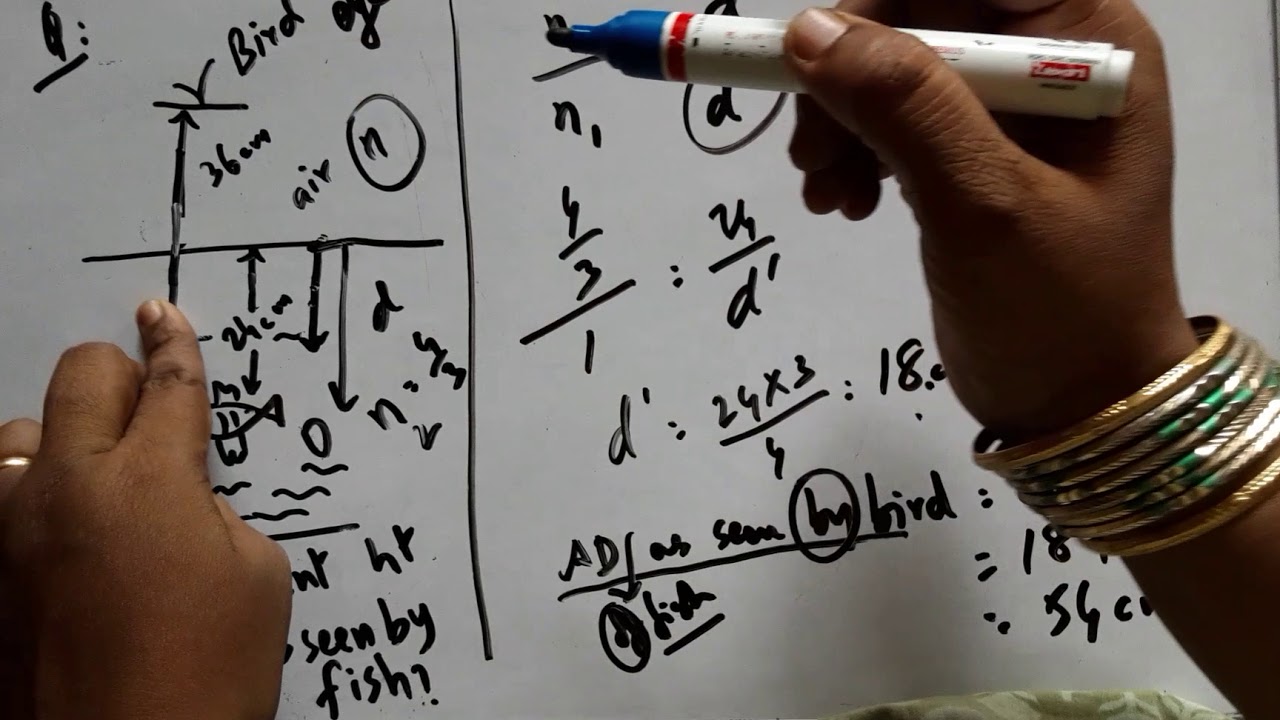 Q:
Bird
36cm
air n
24cm
d
n = 4/3
ht
seen by
fish?
n₁
d
4/3
/1 : 24/d'
d' : 24×3/4 : 18.
AD as seen by bird =
fish
= 18
54 c